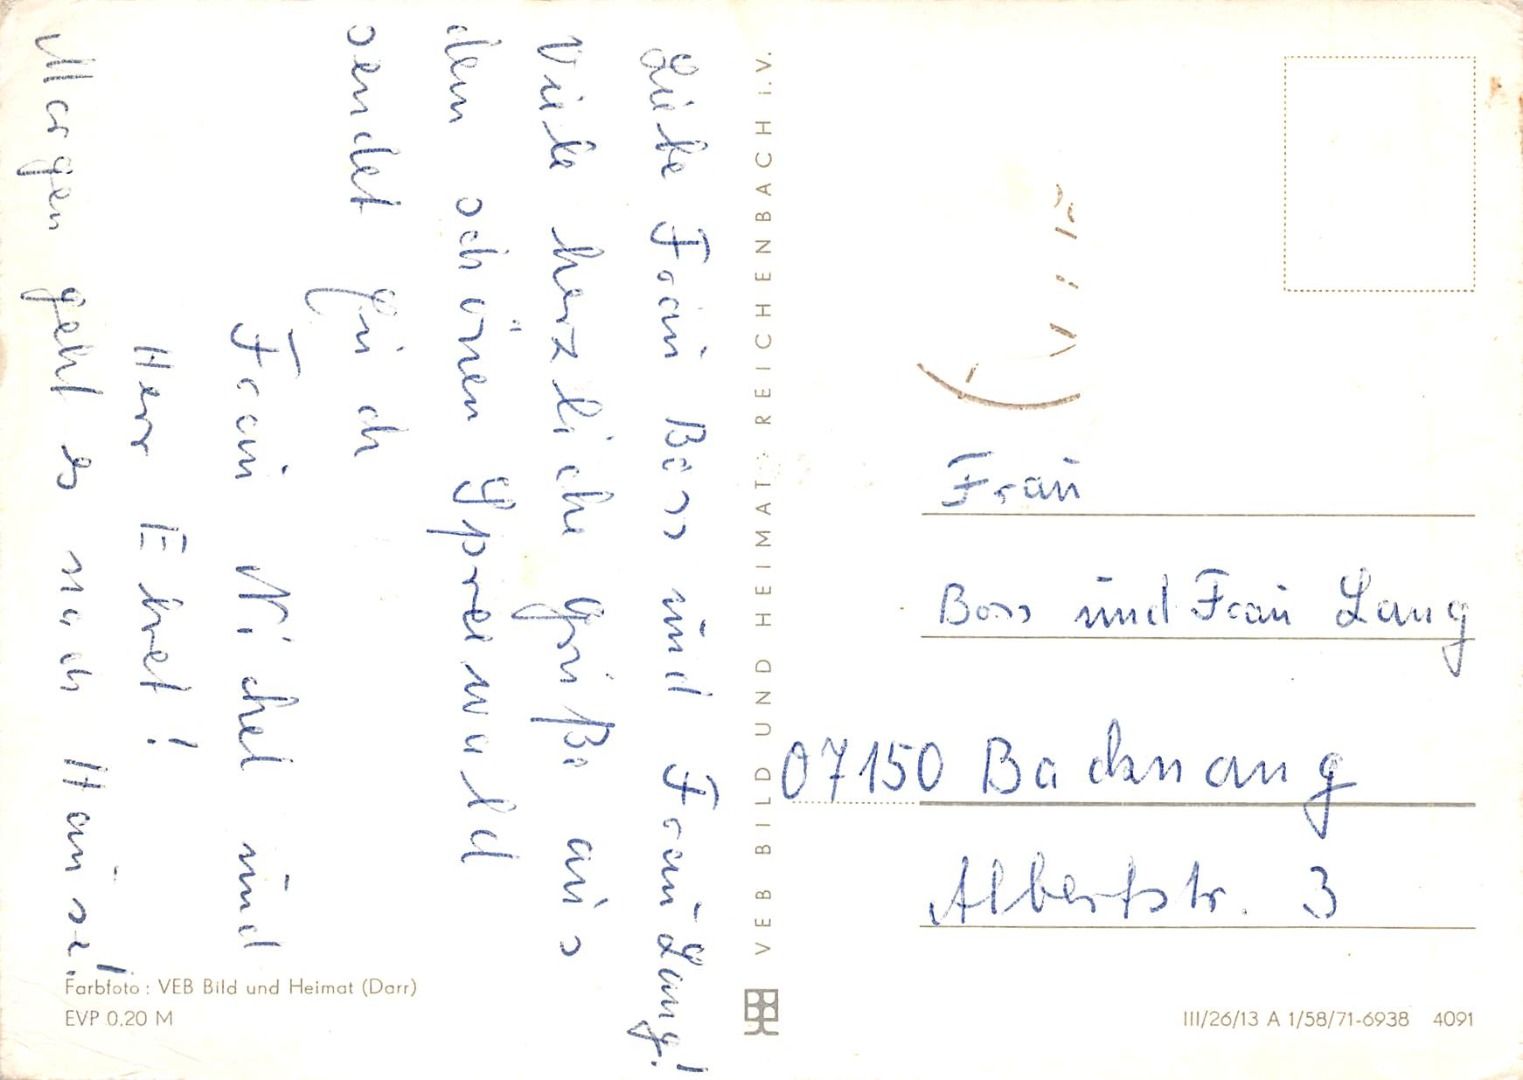 Liebe Frau Boss und Frau Lang!
Viele herzliche Grüße aus
dem schönen Spreewald
sendet für dich
Frau Nichel und
Herr Ebret!
Morgen geht es nach Hause!
Farbfoto: VEB Bild und Heimat (Darr)
EVP 0,20 M
VEB BILD UND HEIMAT · REICHENBACH i.V.
Frau
Boss und Frau Lang
07150 Backnang
Albertstr. 3
III/26/13 A 1/58/71-6938 4091